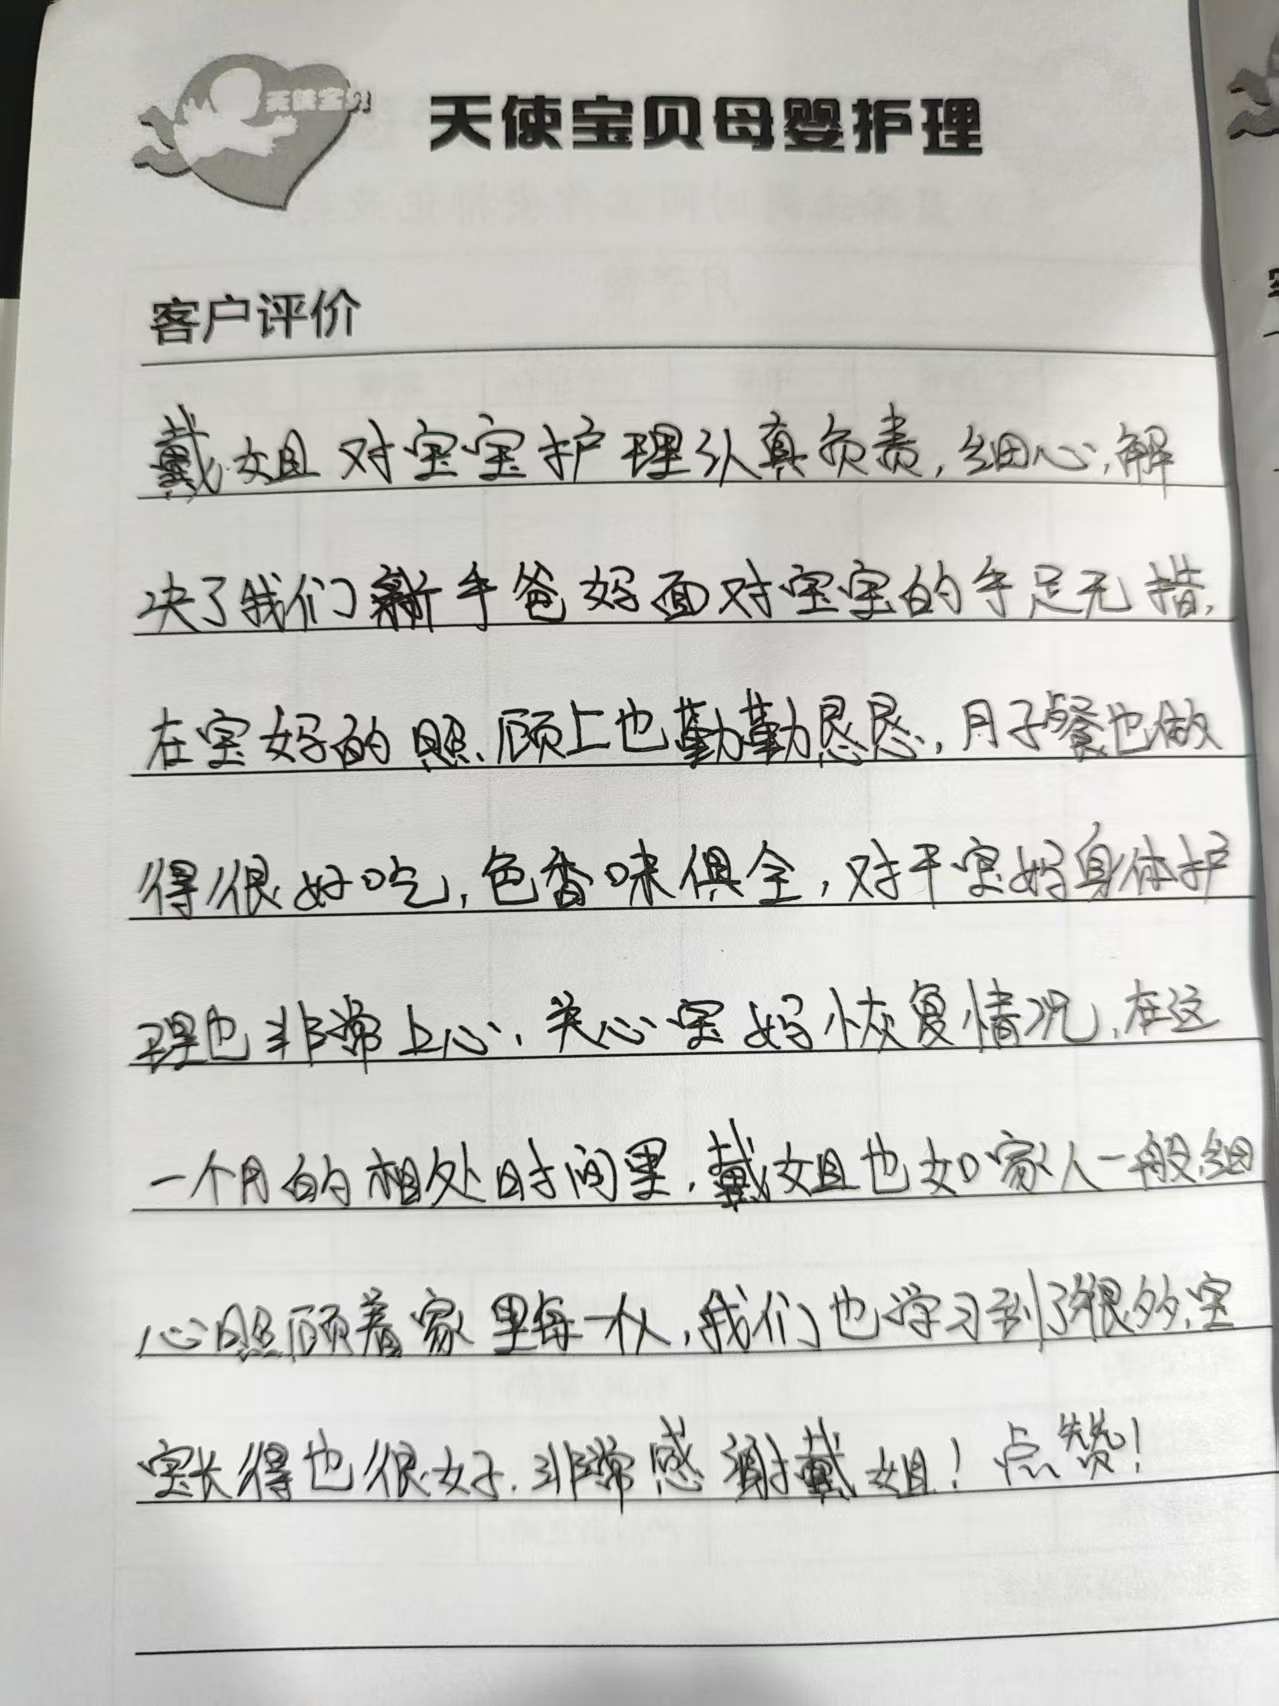 天使宝贝
天使宝贝母婴护理
客户评价
戴姐对宝宝护理认真负责,细心,解
决了我们新手爸妈面对宝宝的手足无措,
在宝妈的照顾上也勤勤恳恳,月子餐也做
得很好吃,色香味俱全,对于宝妈身体护
理也非常上心,关心宝妈恢复情况,在这
一个月的相处时间里,戴姐也如家人一般细
心照顾着家里每一位,我们也学习到了很多,宝
宝长得也很好.非常感谢戴姐!点赞!